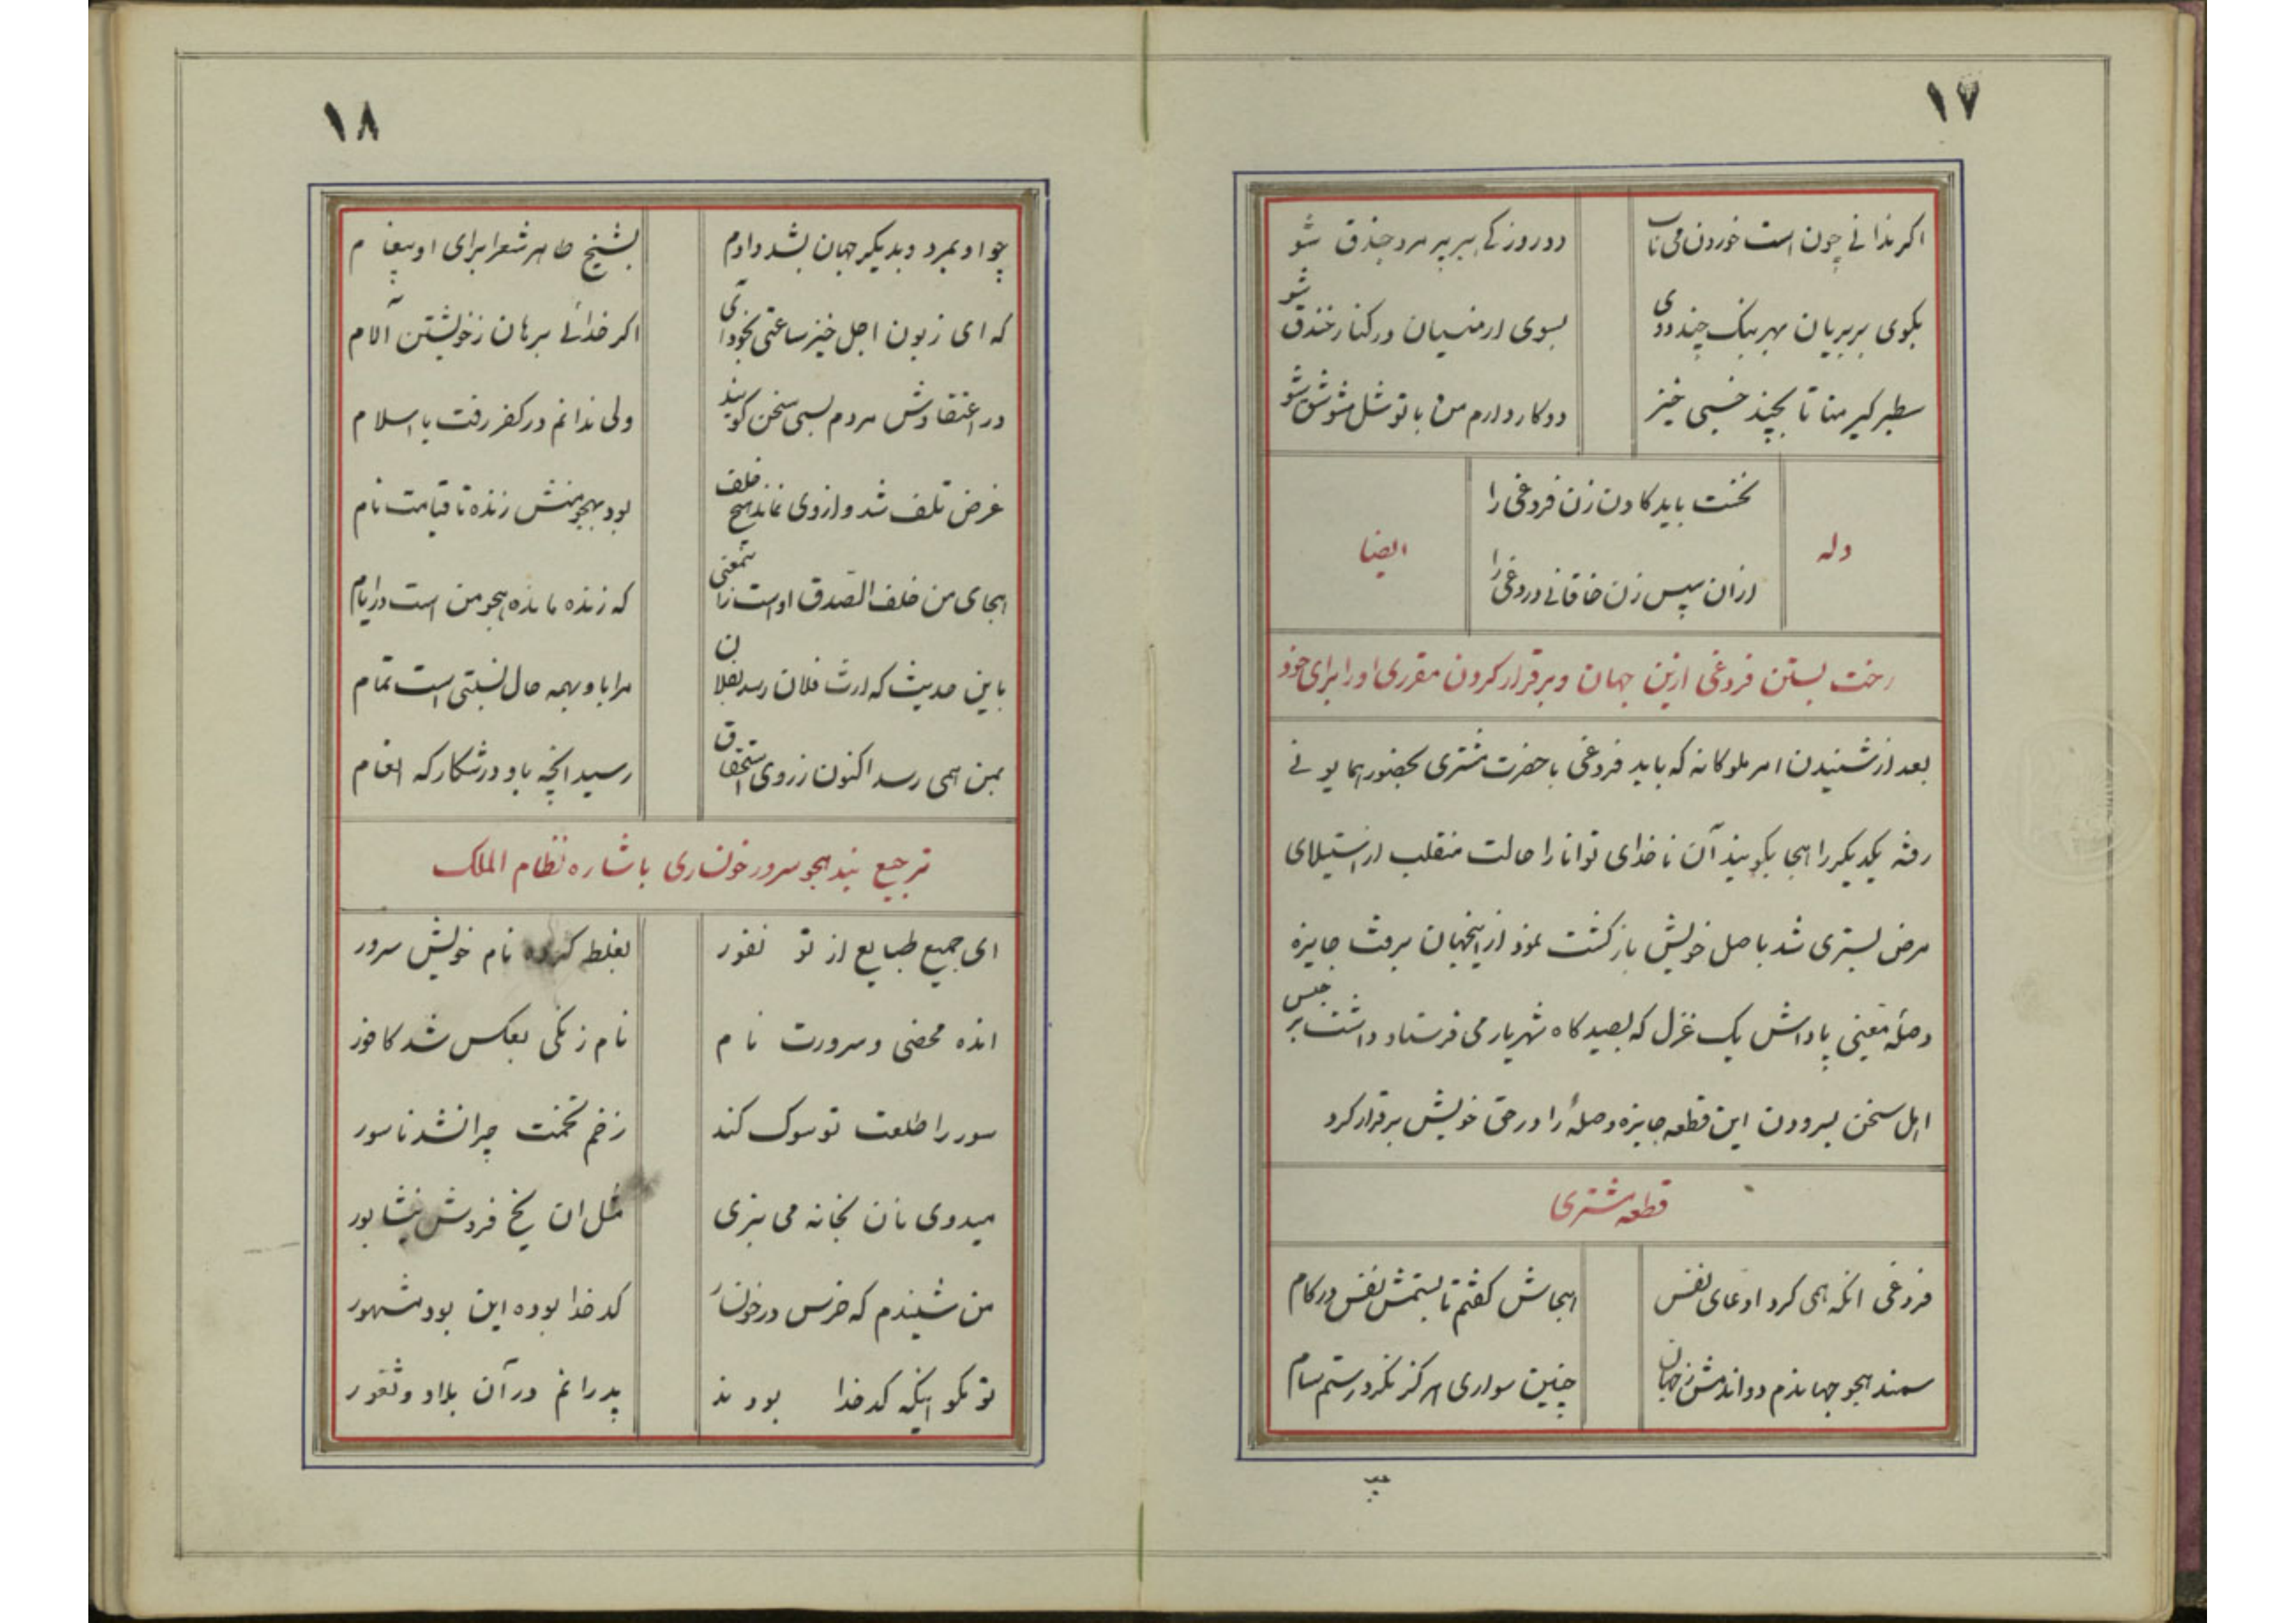 ۱۷
اکر ندانے چون است خوردن می ناب
دو روزکے ببر پیر مرد چذق شو
بکوی بربریان بهر بنک چند دوی
بسوی ارمنیان در کنار خندق شو
سطبر کیر منا تا بچند خسبی خیز
دو کار دارم من با تو شل مشو شق شو
وله
نخست باید کادن زن فروغی را
ایضا
ازان سپس زن خاقانے دروغی را
رخت بستن فروغی ازین جهان و برقرار کردن مقرری او را برای خود
بعد از شنیدن امر ملوکانه که باید فروغی با حضرت مشتری بحضور همایونے
رفته یکدیکر را هجا بکویند آن ناخدای توانا را حالت منقلب از استیلای
مرض بستری شد باصل خویش بازکشت نمود از اینجهان برفت جایزه
وصلهٔ معینی پاداش یک غزل که بصیدکاه شهریار می فرستاد داشت بر حسب
اهل سخن بسرودن این قطعه جایزه وصلهٔ را در حق خویش برقرار کرد
قطعه مشتری
فروغی انکه همی کرد ادعای نفس
هجاش کفتم تا بستمش نفس در کام
سمند هجو جهاندم دواندمش ز جهان
چنین سواری هرکز نکرد رستم سام
۱۸
چو او بمرد و بدیکر جهان بشد دادم
بشیخ طاهر شعرا برای او پیغام
که ای زبون اجل خیز ساعتی بخود آی
اکر خدائے برهان ز خویشتن آلام
در اعتقادش مردم بسی سخن کویند
ولی ندانم در کفر رفت یا اسلام
غرض تلف شد و از وی نماند هیچ خلف
بود بهجو منش زنده تا قیامت نام
هجای من خلف الصّدق اوست زانمعنی
که زنده مانده بهجو من است در ایام
باین حدیث که ارث فلان رسد بفلان
مرا باو بهمه حال نسبتی است تمام
بمن همی رسد اکنون ز روی استحقاق
رسید انچه باو در شکارکه انعام
ترجیع بند هجو سرور خونساری باشاره نظام الملک
ای جمیع طبایع از تو نفور
بغلط کرده نام خویش سرور
انده محضی و سرورت نام
نام زنکی بعکس شد کافور
سور را طلعت تو سوک کند
زخم تخمت چرا نشد ناسور
میدوی نان بخانه می بزی
مثل ان یخ فروش نیشابور
من شنیدم که خرس در خونسار
کدخدا بوده این بود مشهور
تو نکو اینکه کدخدا بودند
پدرانم در آن بلاد و ثغور